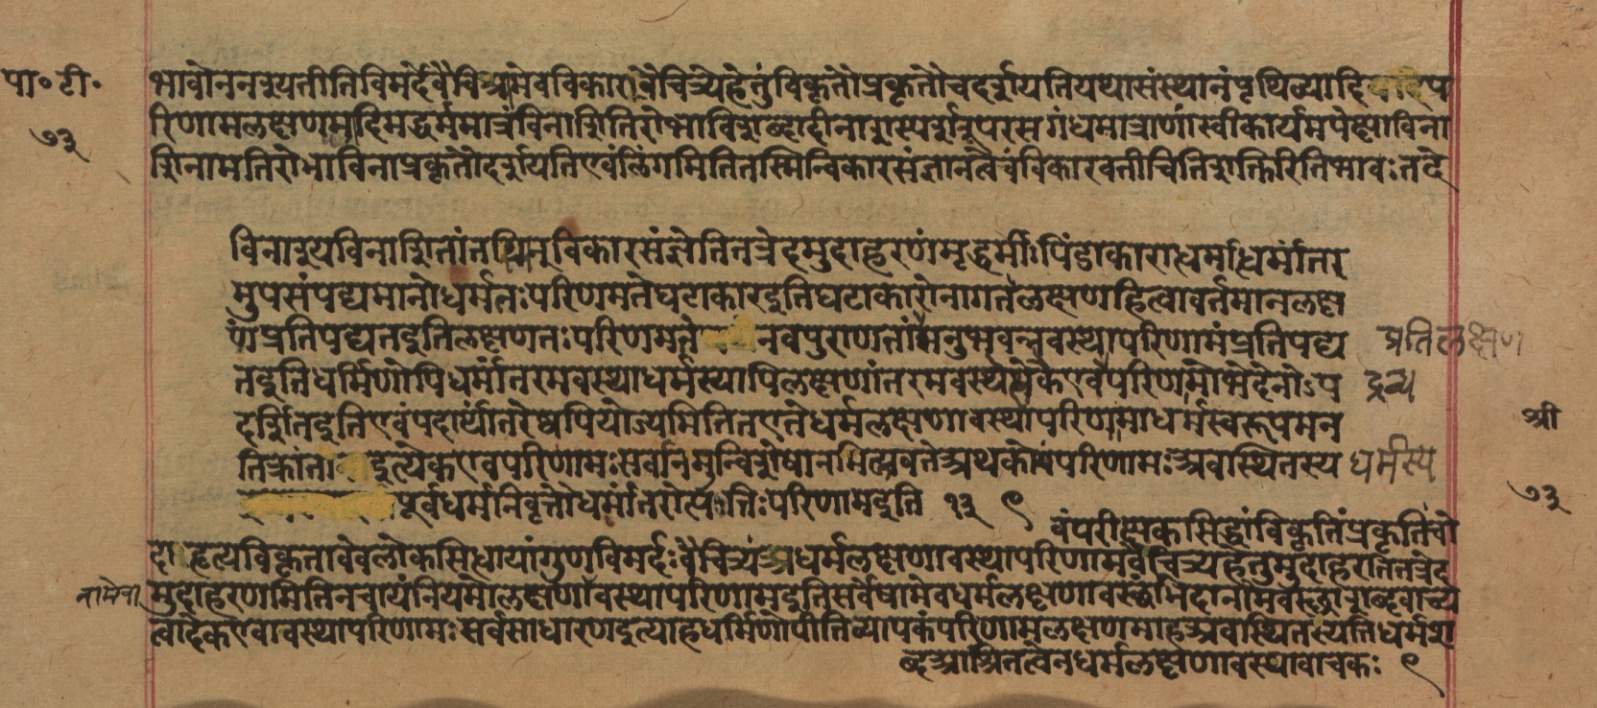 पा॰ टी॰
७३
भावोननश्यतीतिविमर्दवैचित्र्यमेवविकारवैचित्र्येहेतुंविकृतौप्रकृतौचदर्शयतियथासंस्थानंपृथिव्यादि प
रिणामलक्षणमादिमद्धर्ममात्रंविनाशितिरोभाविशब्दादीनाशस्पर्शरूपरसगंधमात्राणांस्वीकार्यमपेक्ष्याविना
शिनामतिरोभाविनाप्रकृतौदर्शयतिएवंलिंगमितितस्मिन्विकारसंज्ञानत्वेवंविकारवतीचितिशक्तिरितिभावःतदे
विनाश्यविनाशिनांतस्मिन्विकारसंज्ञेतितत्रेदमुदाहरणंमृद्धर्मीपिंडाकाराद्धर्माद्धर्मांतर
मुपसंपद्यमानोधर्मतःपरिणमतेघटाकारइतिघटाकारोनागतंलक्षणंहित्वावर्तमानलक्ष
णंप्रतिपद्यतइतिलक्षणतःपरिणमते नवपुराणतांअनुभवन्नवस्थापरिणामंप्रतिपद्य
प्रतिलक्षण
तइतिधर्मिणोपिधर्मांतरमवस्थाधर्मस्यापिलक्षणांतरमवस्थेत्येकएवपरिणामोभेदेनोऽप
द्रव्य
दर्शितइतिएवंपदार्थांतरेष्वपियोज्यमितितएतेधर्मलक्षणावस्थापरिणामाधर्मस्वरूपमन
श्री
तिक्रांता इत्येकएवपरिणामःसर्वानमून्विशेषानभिप्लवतेअथकोयंपरिणामःअवस्थितस्य
धर्मस्य
७३
पूर्वधर्मनिवृत्तौधर्मांतरोत्पत्तिःपरिणामइति १३ ९
वंपरीक्षकसिद्धांविकृतिंप्रकृतिंचो
दाहृत्यविकृतावेवलोकसिद्धायांगुणविमर्दःवैचित्र्यंअधर्मलक्षणावस्थापरिणामवैचित्र्यहेतुमुदाहरतितत्रेद
मुदाहरणमितिनचायंनियमोलक्षणावस्थापरिणामइतिसर्वेषामेवधर्मलक्षणावस्थाभेदानामवस्थाशब्दवाच्य
त्वादेकएवावस्थापरिणामःसर्वसाधारणइत्याहधर्मिणोपीतिव्यापकंपरिणामलक्षणमाहअवस्थितस्येतिधर्मश
ब्दआश्रितत्वेनधर्मलक्षणावस्थावाचकः ९